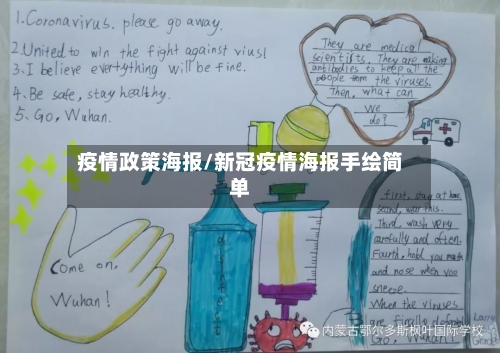 1. Coronavirus. please go away.
2. United to win the fight against viusl
3. I believe evertything will be fine.
4. Be safe, stay healthy.
5. Go, Wuhan.
They are medical
scientists. They are making
antibodies to keep all the
people from the viruses.
Then, what can
we
do?
疫情政策海报/新冠疫情海报手绘简
单
Come on,
Wuhan!
disinfect
first, stay at home
second, wear this.
Third, wash very
carefully and often.
Fourth, hold you mouth
and nose when you
sneeze.
When the viruses
are finally defeated
Go, Wuhan!
Larry
Grade
内蒙古鄂尔多斯枫叶国际学校